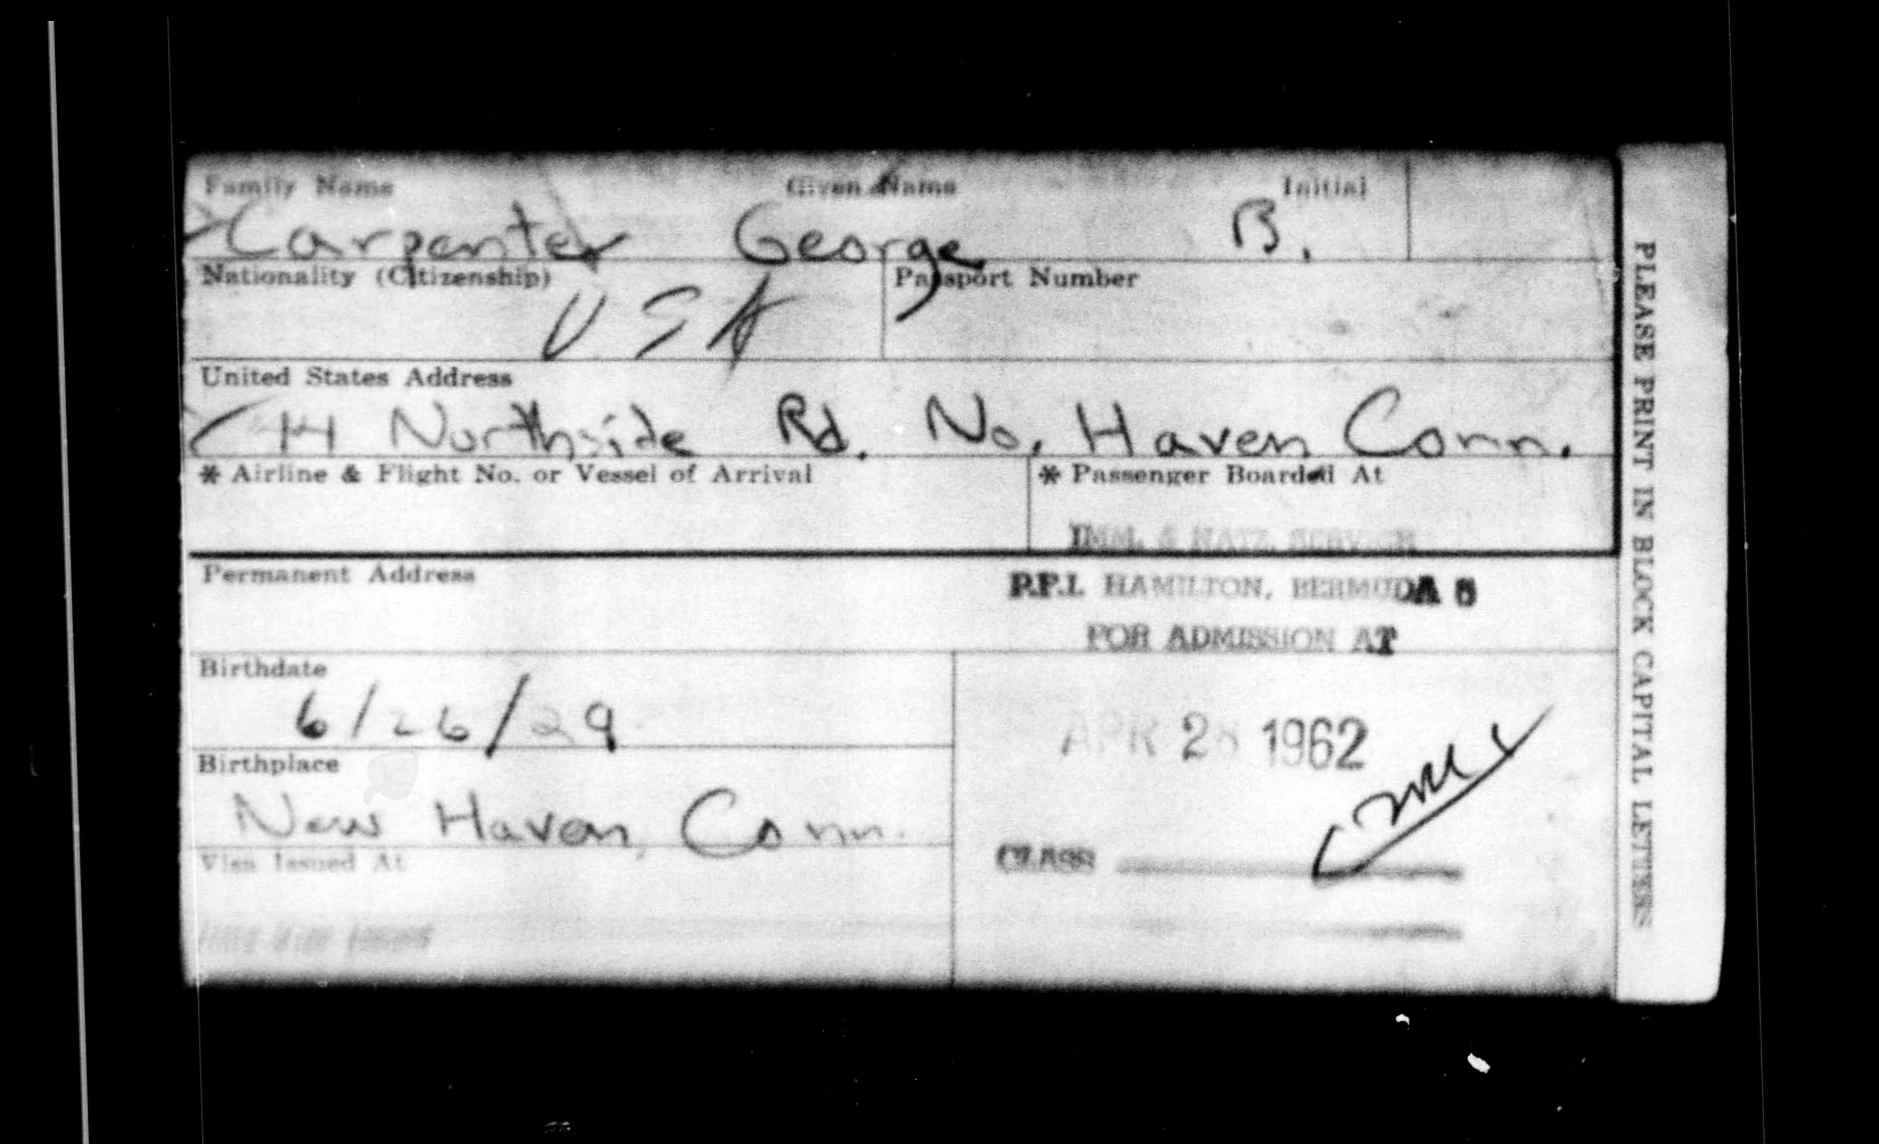 Family Name Given Name Initial
Carpenter George B.
Nationality (Citizenship) Passport Number
USA
United States Address
14 Northside Rd. No. Haven Conn.
* Airline & Flight No. or Vessel of Arrival * Passenger Boarded At
IMM. & NATZ. SERVICE
Permanent Address
P.F.I. HAMILTON, BERMUDA 8
FOR ADMISSION AT
Birthdate
6/26/29
APR 28 1962
Birthplace
New Haven, Conn.
CLASS
Visa Issued At
PLEASE PRINT IN BLOCK CAPITAL LETTERS